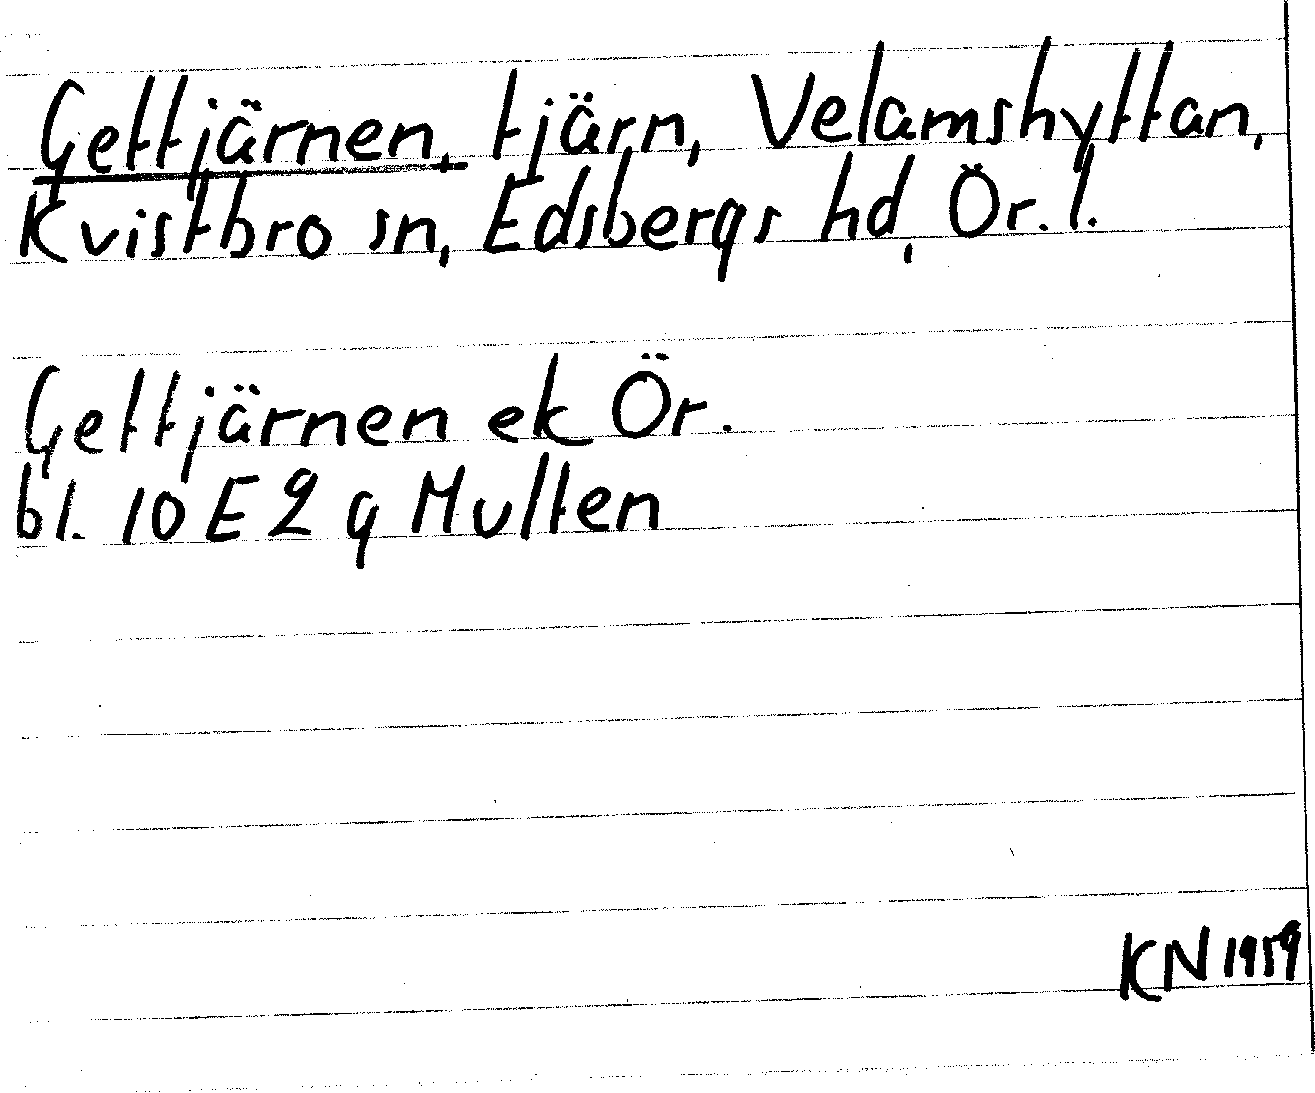 Gettjärnen, tjärn, Velamshyttan,
Kvistbro sn, Edsbergs hd, Ör. l.
Gettjärnen ek Ör.
bl. 10 E 2 g Multen
KN 1959